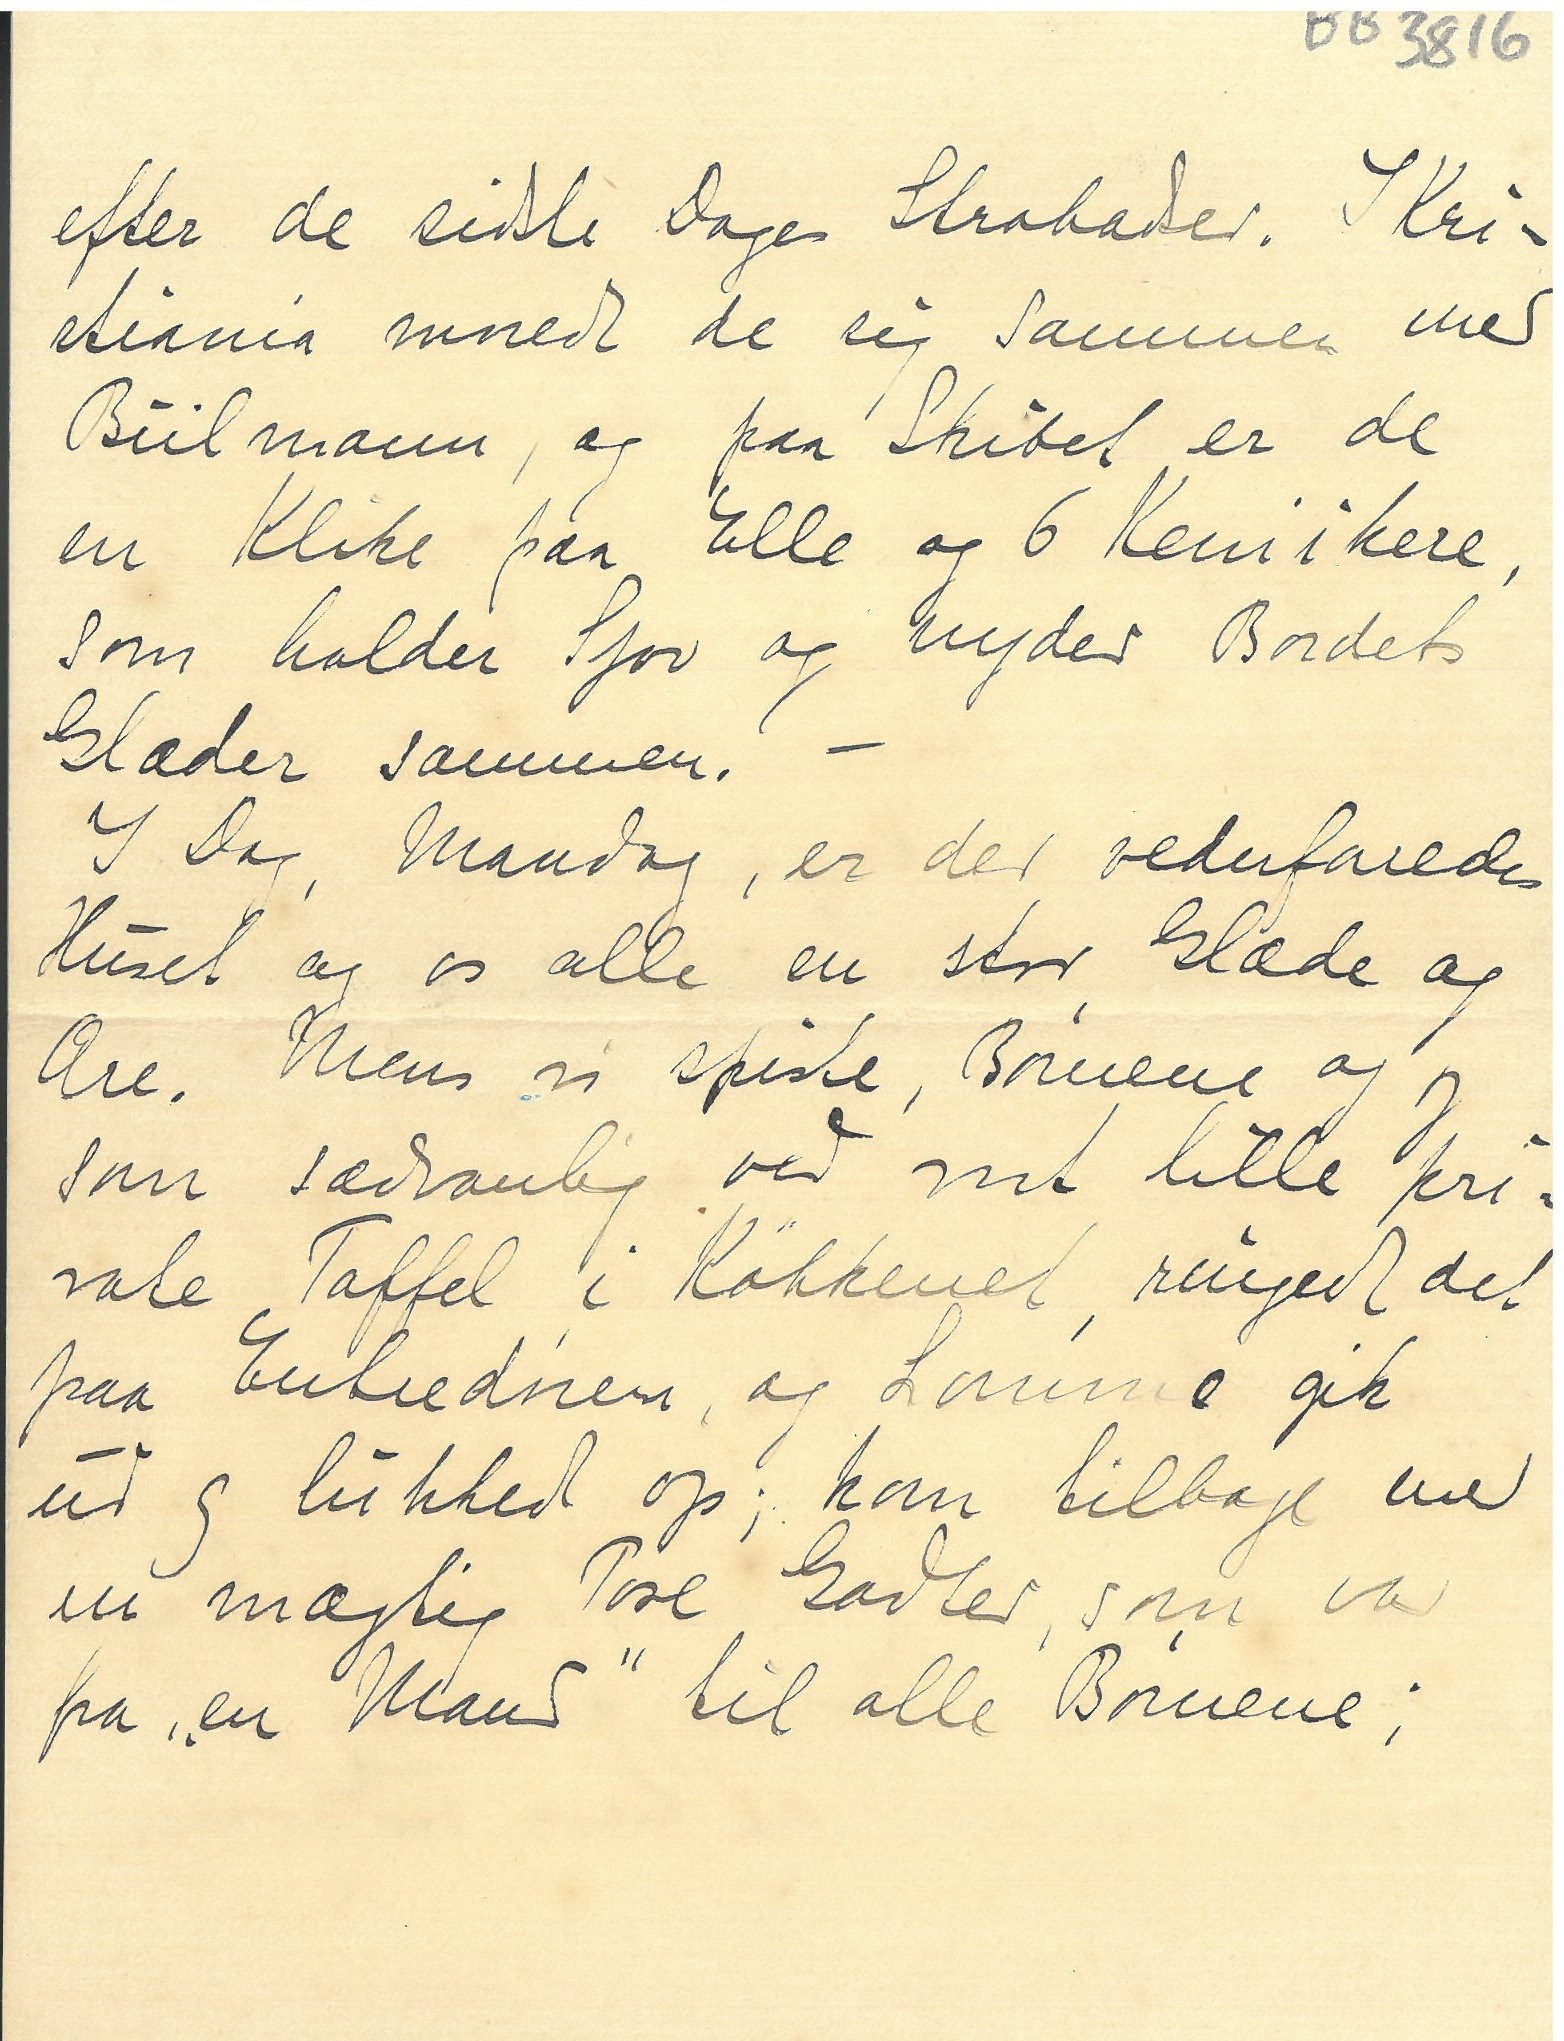 BB 3816
efter de sidste Dages Strabadser. I Kri-
stiania  de sig sammen med
Büilmann, og paa Skibet er de
en Klike paa Elle og 6 Kemikere,
som holder Sjov og nyder Bordets
Glæder sammen. –
I Dag, Mandag, er der vederfaredes
Huset og os alle en stor Glæde og
Ære. Mens vi spiste, Börnene og jeg
som sædvanlig ved mit lille pri-
vate Taffel i Kökkenet, ringedt det
paa Entredören, og Lomme gik
ud og lukkedt op; kom tilbage med
en mægtig Pose Godter, som var
fra "en Mand" til alle Börnene;